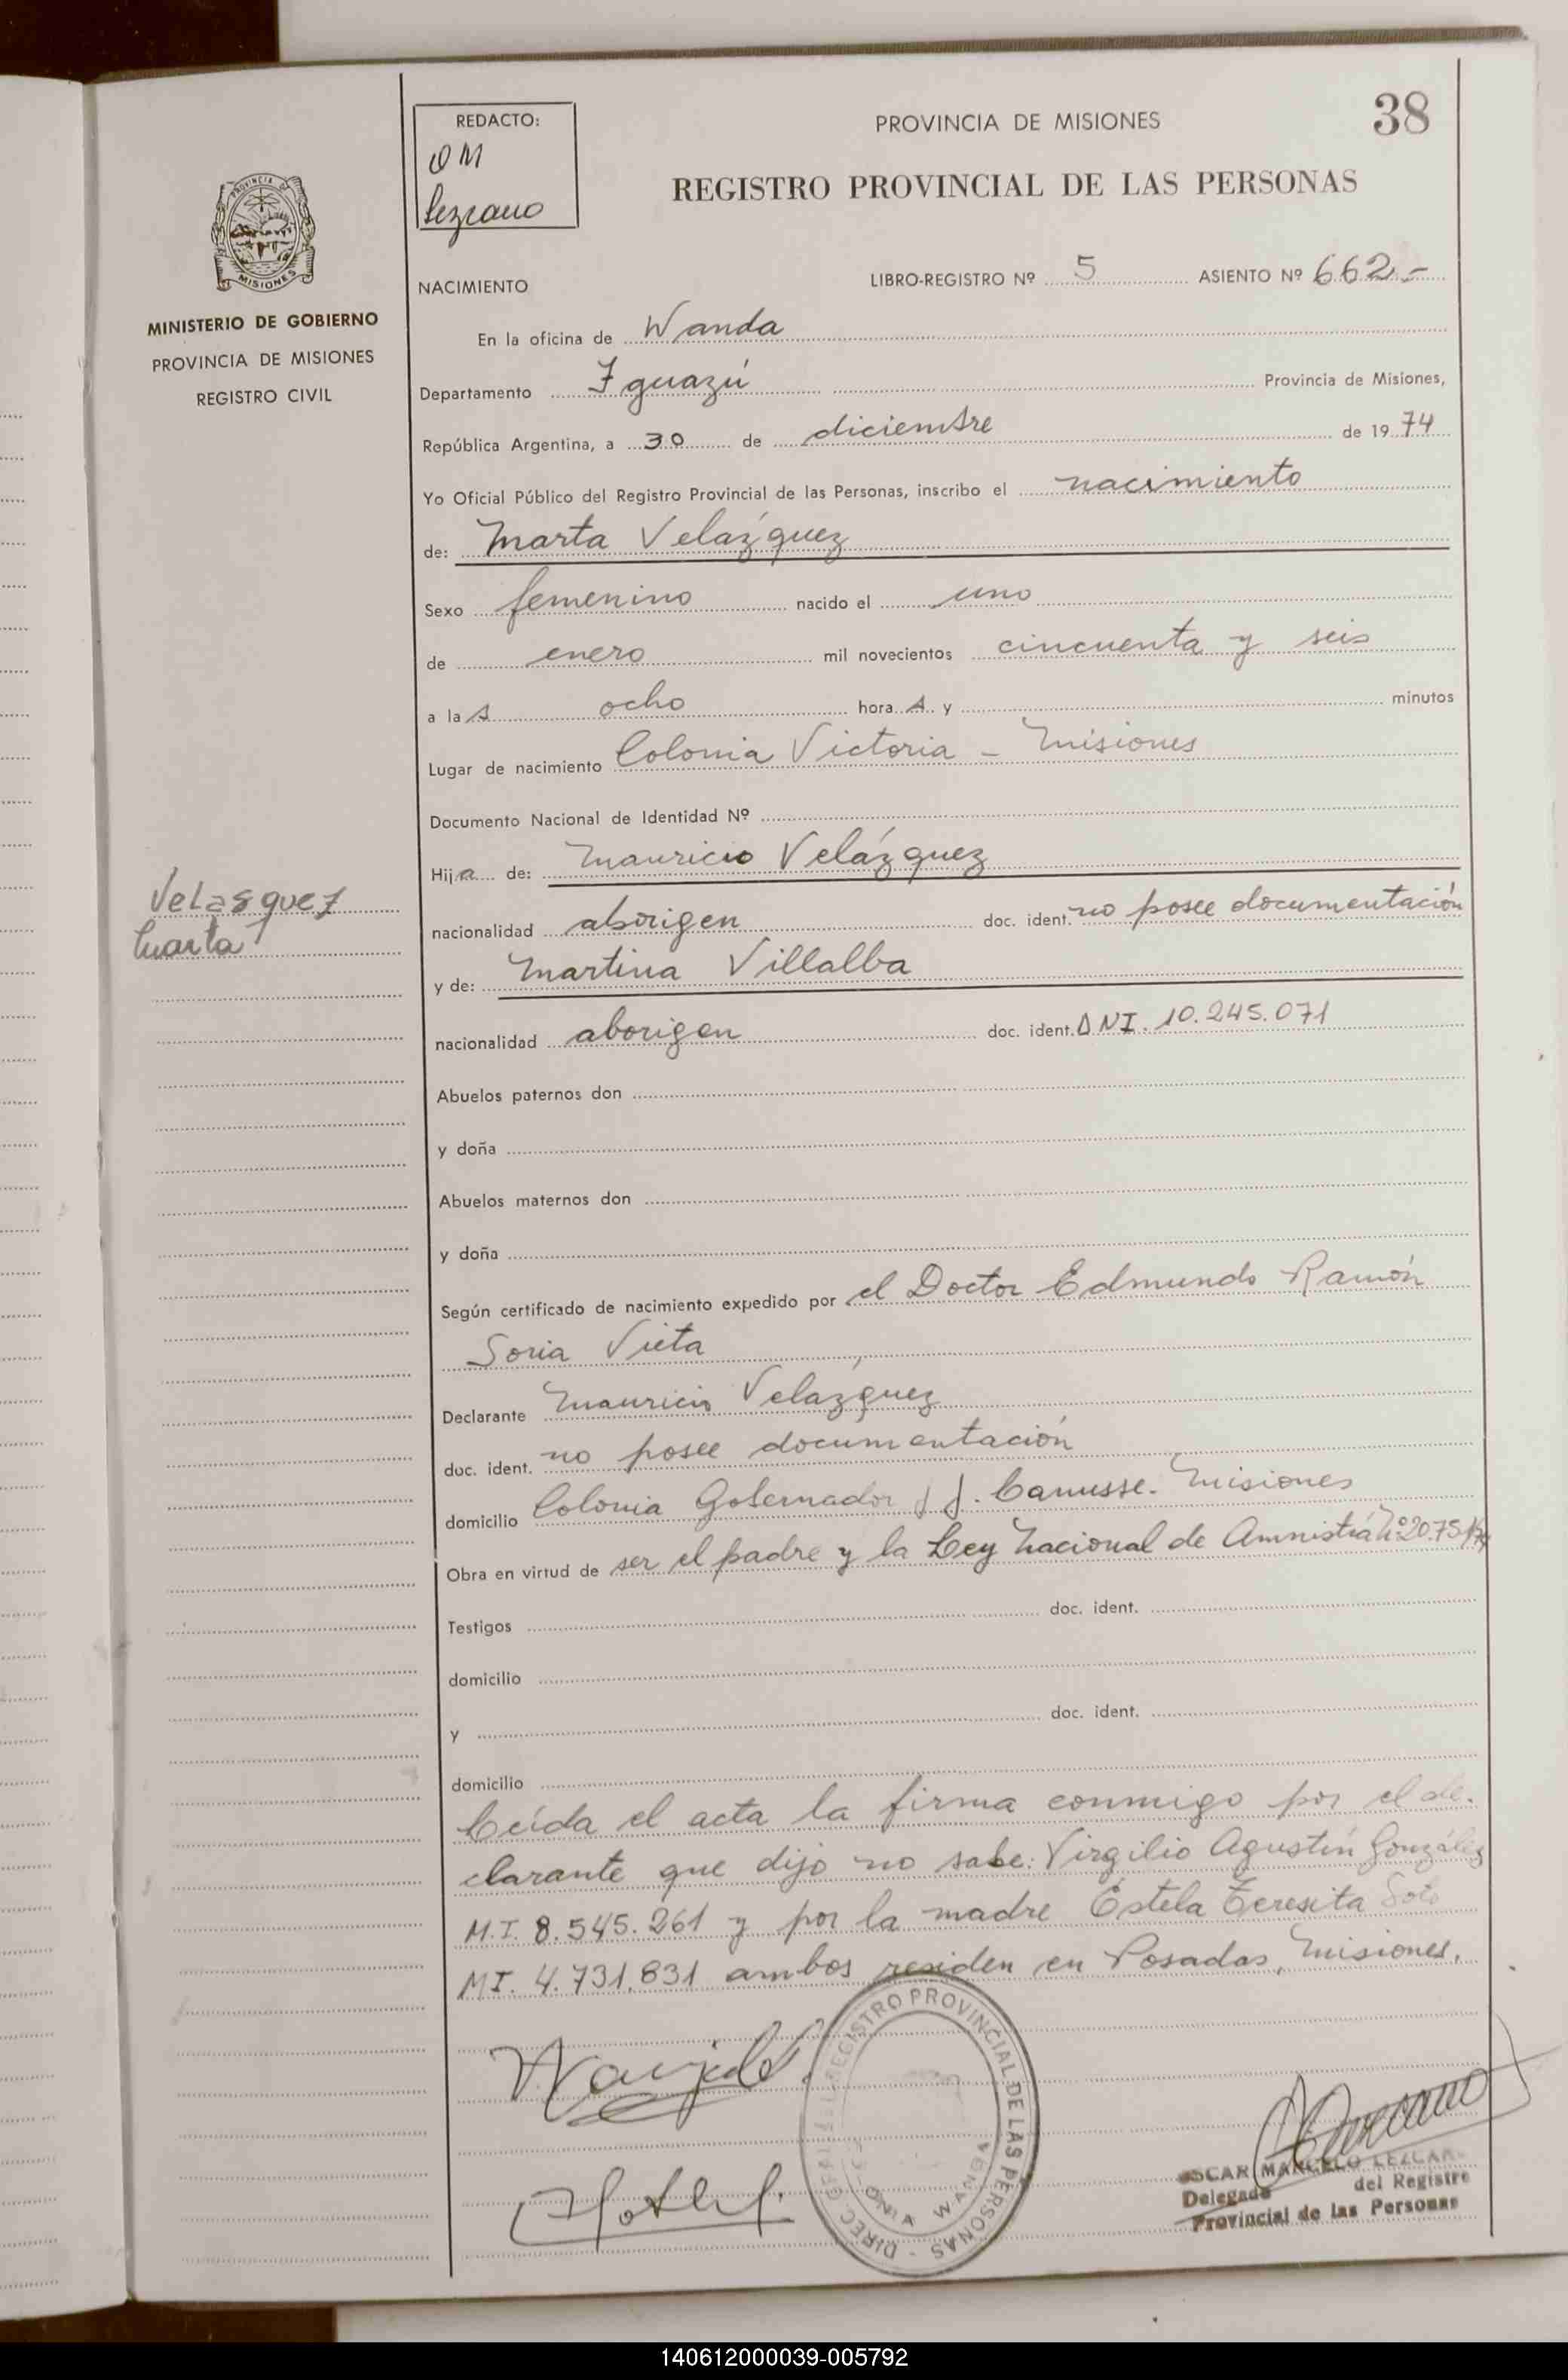 38
REDACTO:
OM
Lezcano
PROVINCIA DE MISIONES
REGISTRO PROVINCIAL DE LAS PERSONAS
PROVINCIA DE
MISIONES
MINISTERIO DE GOBIERNO
PROVINCIA DE MISIONES
REGISTRO CIVIL
NACIMIENTO
LIBRO-REGISTRO Nº 5 ASIENTO Nº 662.-
En la oficina de Wanda
Departamento Iguazú Provincia de Misiones,
República Argentina, a 30 de diciembre de 1974
Yo Oficial Público del Registro Provincial de las Personas, inscribo el nacimiento
de: Marta Velázquez
Sexo femenino nacido el uno
de enero mil novecientos cincuenta y seis
a las ocho horas y minutos
Lugar de nacimiento Colonia Victoria - Misiones
Documento Nacional de Identidad Nº
Hija de: Mauricio Velázquez
Velasquez
Marta
nacionalidad aborigen doc. ident. no posee documentación
y de: Martina Villalba
nacionalidad aborigen doc. ident. DNI. 10.245.071
Abuelos paternos don
y doña
Abuelos maternos don
y doña
Según certificado de nacimiento expedido por el Doctor Edmundo Ramón
Soria Vieta
Declarante Mauricio Velázquez
doc. ident. no posee documentación
domicilio Colonia Gobernador J J. Lanusse. Misiones
Obra en virtud de ser el padre y la Ley Nacional de Amnistía Nº 20.751/74
Testigos doc. ident.
domicilio
y doc. ident.
domicilio
Leída el acta la firma conmigo por el de-
clarante que dijo no sabe: Virgilio Agustín González
M.I. 8.545.261 y por la madre Estela Teresita Soto
MI. 4.731.831 ambos residen en Posadas, Misiones.
REGISTRO PROVINCIAL DE LAS PERSONAS - DIREC GENERAL
COLONIA WANDA
OSCAR MARCELO LEZCANO
Delegado del Registro
Provincial de las Personas
140612000039-005792